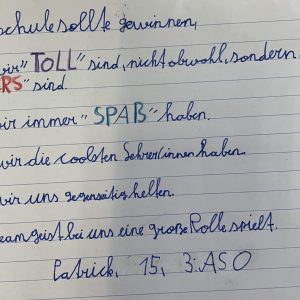 schule sollte gewinnen,
wir "TOLL" sind, nicht obwohl, sondern
RS" sind.
wir immer "SPAẞ" haben.
wir die coolsten Lehrer/innen haben.
wir uns gegenseitig helfen.
eamgeist bei uns eine große Rolle spielt.
Patrick, 15, 3.ASO